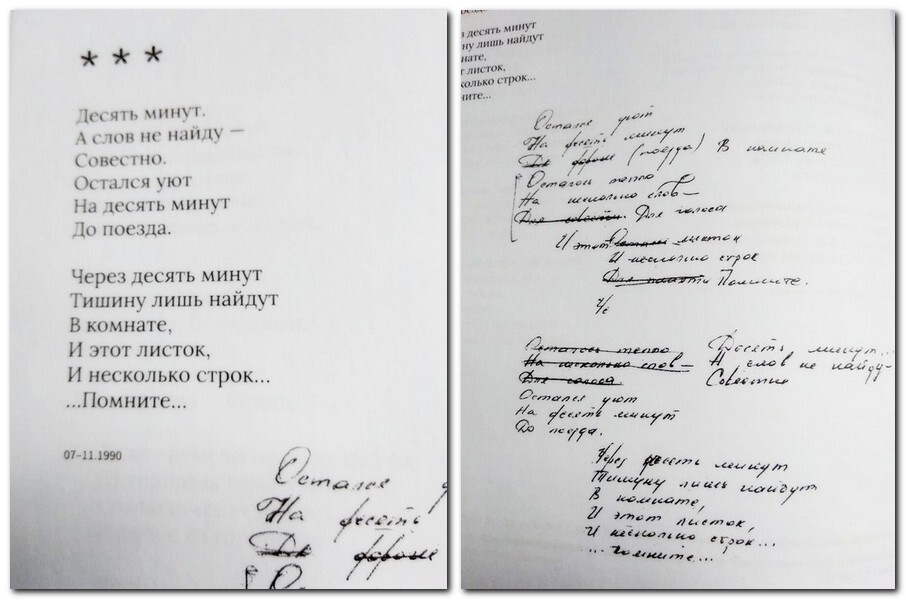 * * *
Десять минут.
А слов не найду —
Совестно.
Остался уют
На десять минут
До поезда.
Через десять минут
Тишину лишь найдут
В комнате,
И этот листок,
И несколько строк...
...Помните...
07–11.1990
Остался
На десять
десять минут
ну лишь найдут
нате,
т листок,
колько строк...
ните...
Остался уют
На десять минут
(поезда) В комнате
Осталось тепло
На несколько слов—
Для совести. Для голоса
И этот листок
И несколько строк
Для памяти Помните.
Осталось тепло
На несколько слов—
Для голоса
Остался уют
На десять минут
До поезда.
Десять минут...
А слов не найду—
Совестно
Через десять минут
Тишину лишь найдут
В комнате,
И этот листок,
И несколько строк...
...Помните...